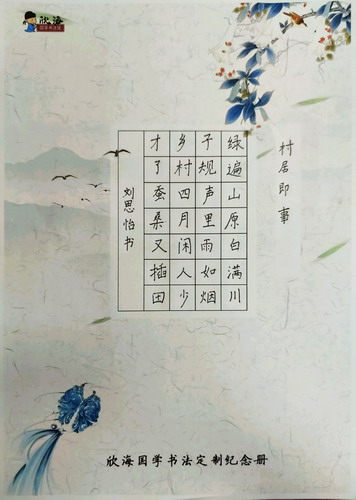 欣海
村居即事
绿遍山原白满川
子规声里雨如烟
乡村四月闲人少
才了蚕桑又插田
刘思怡书
欣海国学书法定制纪念册